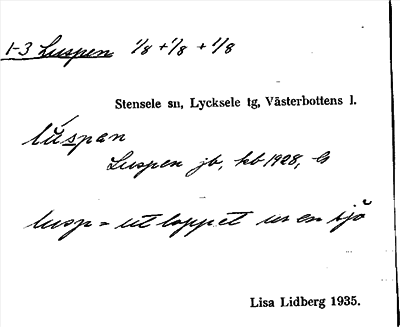 1-3 Luspen 1/8 + 1/8 + 1/8
Stensele sn, Lycksele tg, Västerbottens l.
lúspan
Luspen jb, kb 1928,
lusp = utloppet ur en sjö
Lisa Lidberg 1935.